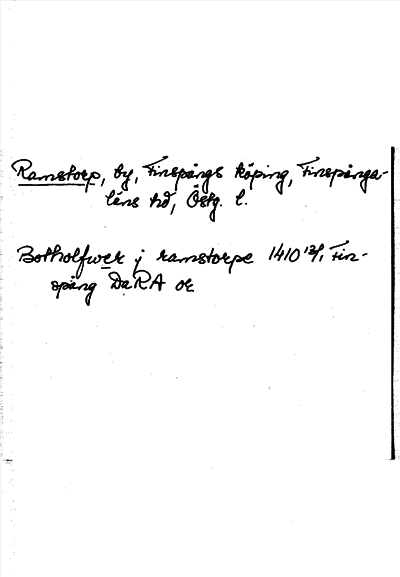 Ramstorp, by, Finspångs köping, Finspånga-
läns hd, Östg. l.
Botholfwer j ramstorpe 1410 13/1 Fin-
spång DaRA or